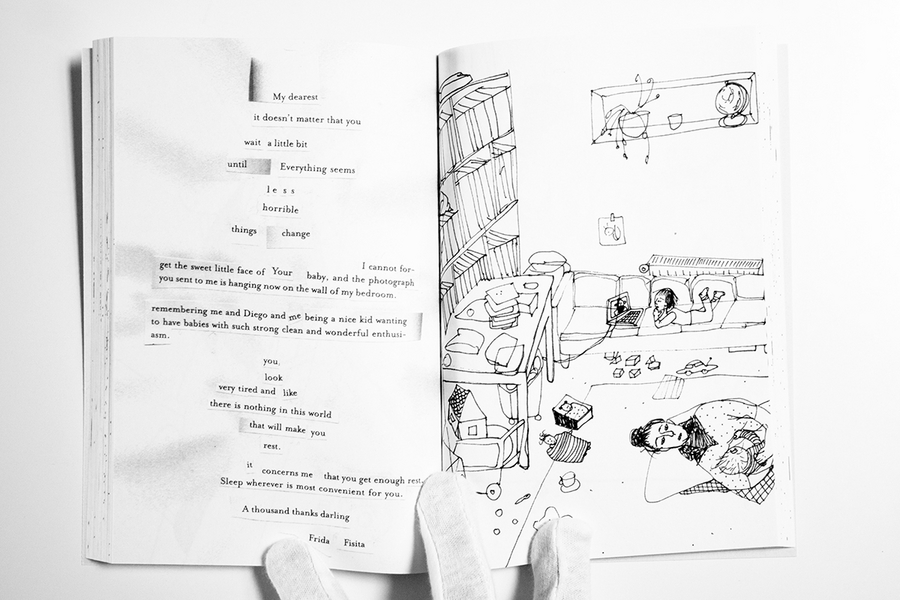 My dearest
it doesn't matter that you
wait a little bit
until Everything seems
less
horrible
things change
I cannot for-
get the sweet little face of Your baby, and the photograph
you sent to me is hanging now on the wall of my bedroom.
remembering me and Diego and me being a nice kid wanting
to have babies with such strong clean and wonderful enthusi-
asm.
you,
look
very tired and like
there is nothing in this world
that will make you
rest.
it concerns me that you get enough rest.
Sleep wherever is most convenient for you.
A thousand thanks darling
Frida Fisita